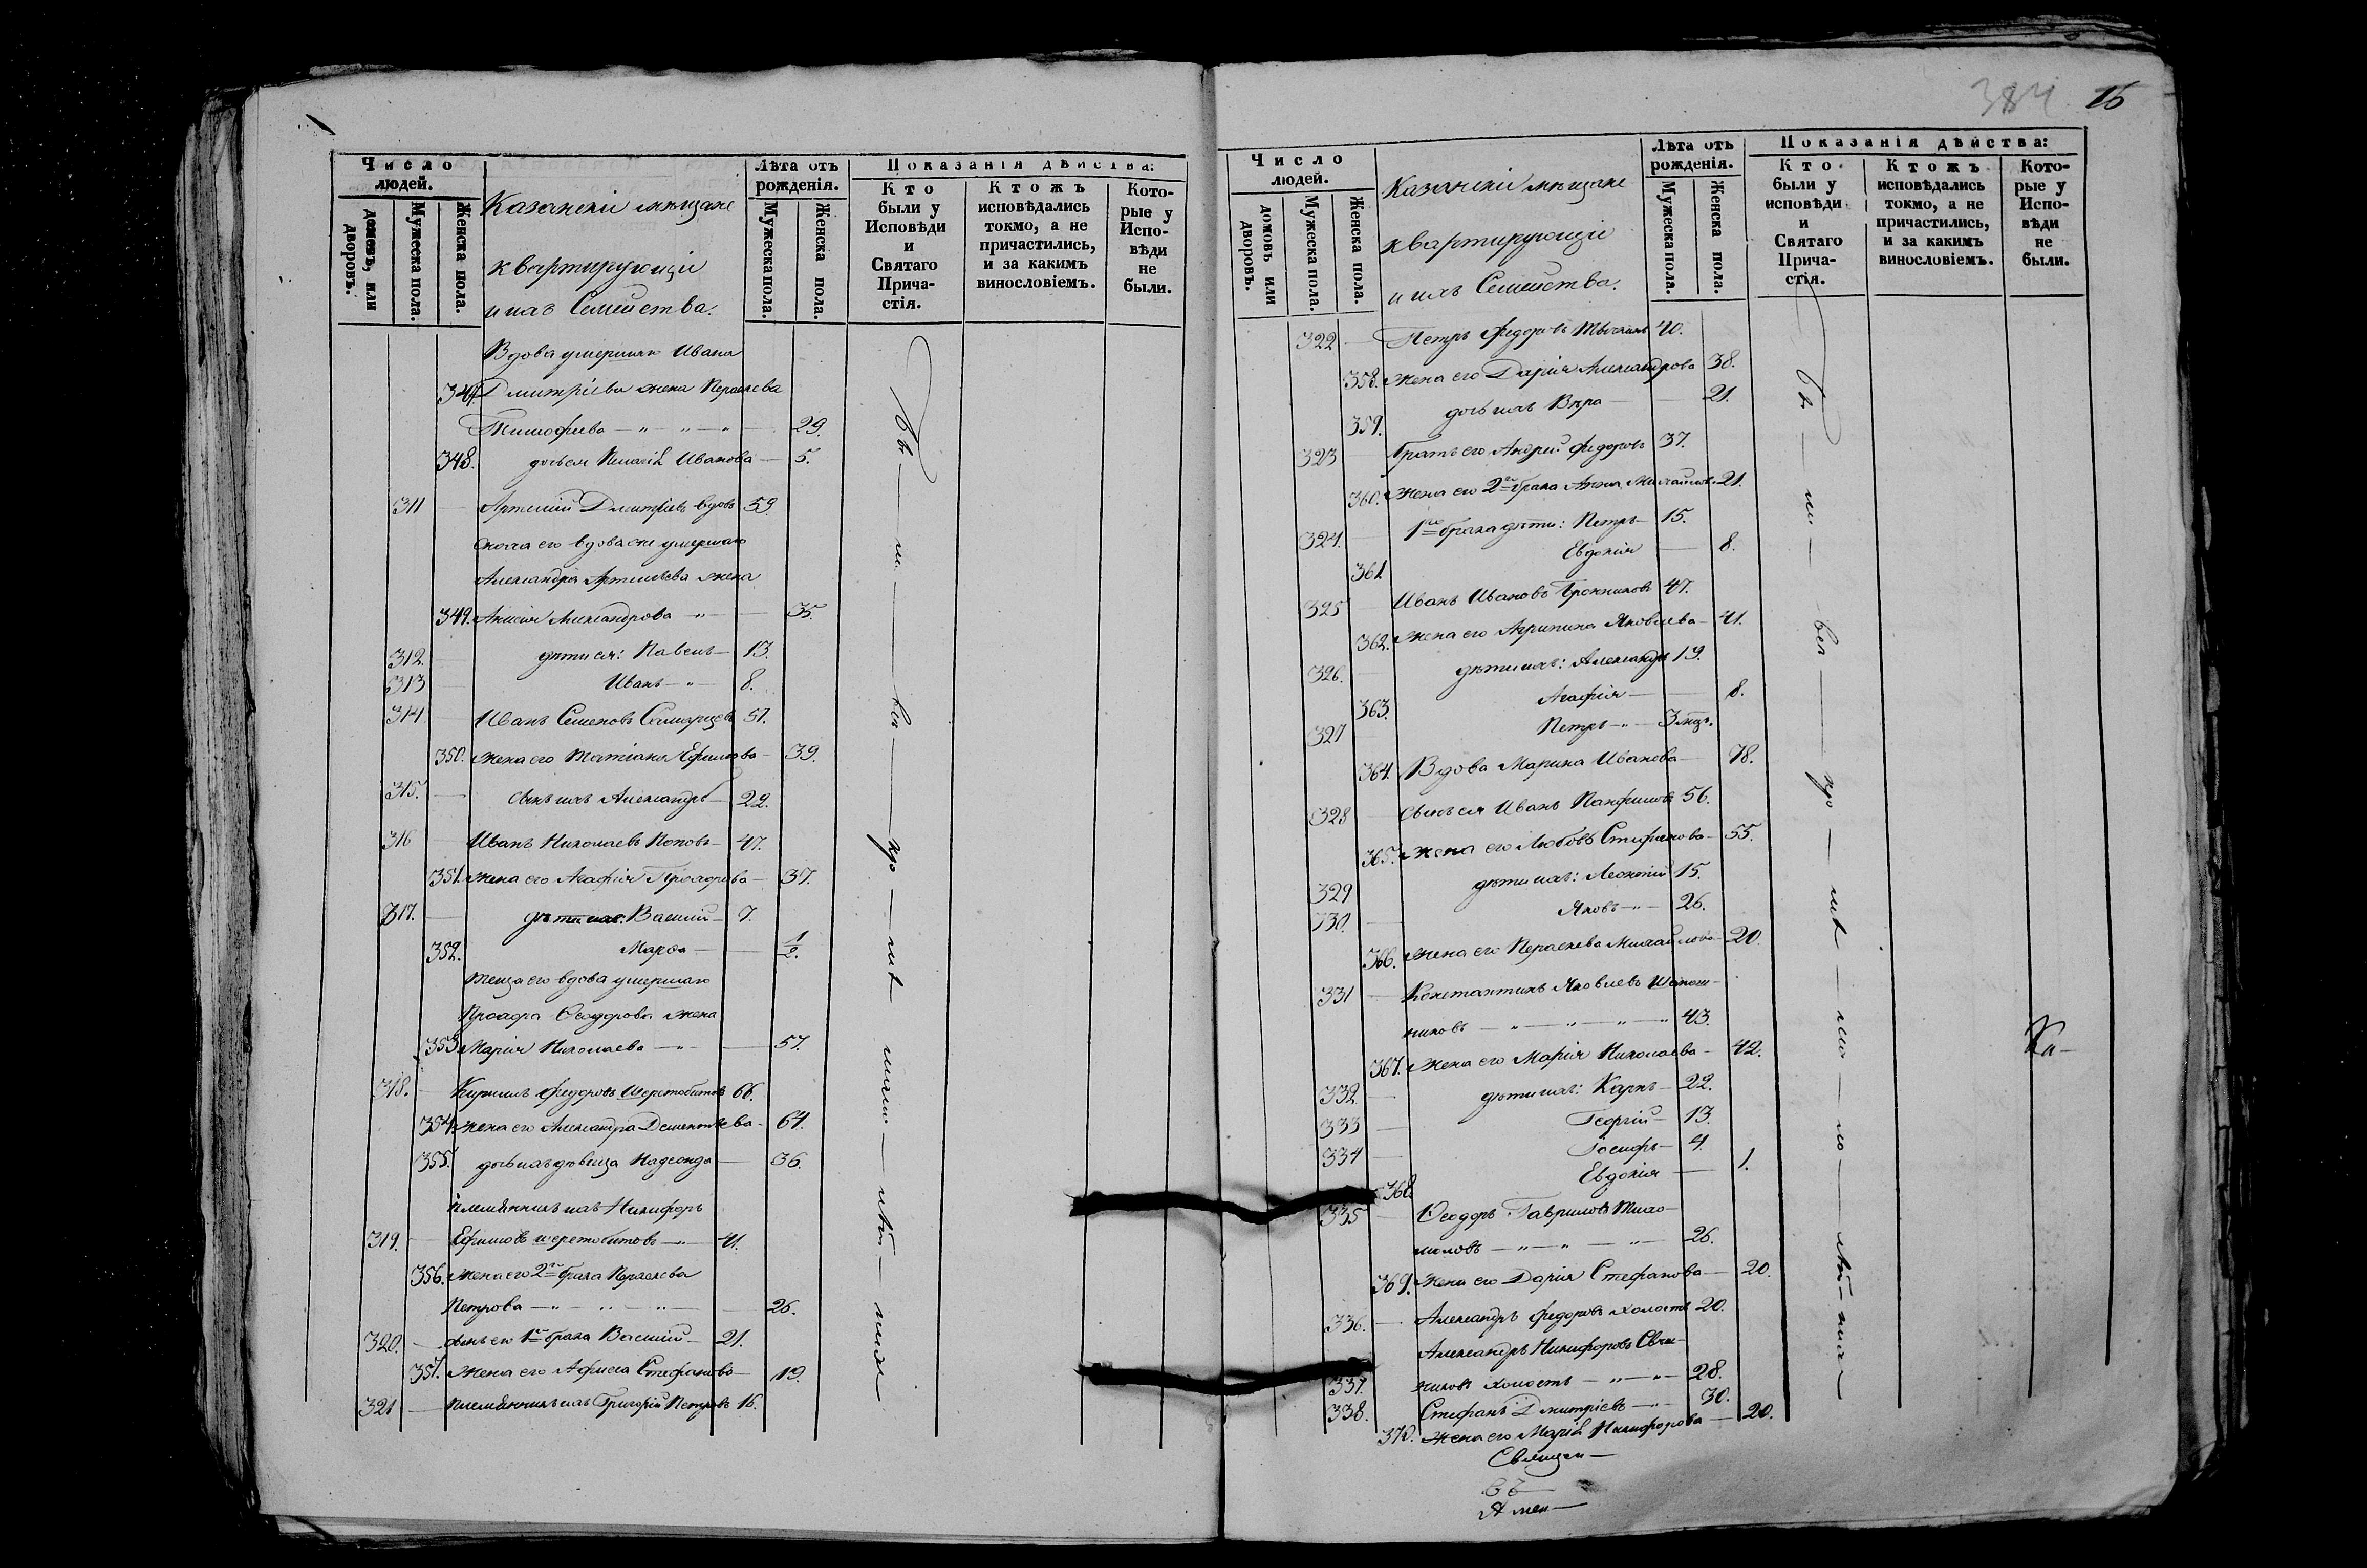 Число людей.
домовъ, или дворовъ.
Мужеска пола.
Женска пола.
Казанскіи мѣщане
квартирующіи
и ихъ Семейства.
Лѣта отъ рожденія.
Мужеска пола.
Женска пола.
Показанія дѣйства:
Кто были у Исповѣди и Святаго Прича-стія.
Ктожъ исповѣдались токмо, а не причастились, и за какимъ винословіемъ.
Кото-рые у Испо-вѣди не были.
Вдова умершаго Ивана
347. Дмитріева жена Параскева
Тимофеева — " — " — " — 29.
348. дочь ея Пелагія Иванова — 5.
311 — Артемій Дмитріевъ вдовъ 59.
сноха его вдова же умершаго
Александра Артемьева жена
349. Анисія Александрова — " — 35.
312. — дѣти ея: Павелъ — 13.
313 — Иванъ — " — 8.
314 — Иванъ Семеновъ 51.
350. жена его Татіана Ефимова — 39.
315. — сынъ ихъ Александръ — 22.
316 — Иванъ Николаевъ Поповъ — 47.
351. жена его Агафія Прохорова — 37.
317. — дѣти ихъ: Василій — 7.
352. Марѳа — 1/2.
теща его вдова умершаго
Прохора Ѳеодорова жена
353. Марія Николаева — " — 57.
318. — Кирилъ Федоровъ Шерстобитовъ 66.
354. жена его Александра Дементьева — 64.
355. дочь ихъ дѣвица Надежда — 36.
племянникъ ихъ Никифоръ
319. — Ефимовъ Шерстобитовъ — " — 41.
356. жена его 2го брака Параскева
Петрова — " — " — " — 26.
320. — сынъ его 1го брака Василій — 21.
357. жена его Афиса Стефанова — 19.
321 — племянникъ ихъ Григорій Петровъ 16.
384 15
Число людей.
домовъ или дворовъ.
Мужеска пола.
Женска пола.
Казанскіи мѣщане
квартирующіи
и ихъ Семейства.
Лѣта отъ рожденія.
Мужеска пола.
Женска пола.
Показанія дѣйства:
Кто были у исповѣди и Святаго Прича-стія.
Ктожъ исповѣдались токмо, а не причастились, и за какимъ винословіемъ.
Кото-рые у Испо-вѣди не были.
322 — Петръ Федоровъ 40.
358. жена его Дарія Александрова 38.
359. дочь ихъ Вѣра — 21.
323 братъ его Андрей Федоровъ 37.
360. жена его 2го брака Анна 21.
324. — 1го брака дѣти: Петръ — 15.
361 Евдокія — 8.
325 — Иванъ Ивановъ Бронниковъ 47.
362. жена его Агрипина Яковлева — 41.
326. — дѣти ихъ: Александръ 19.
363. Агафія — 8.
327 Петръ — " — 3 мѣс.
364. Вдова Марина Иванова — 78.
328 — сынъ ея Иванъ Панфиловъ 56.
365. жена его Любовь Стефанова — 55.
329 дѣти ихъ: Леонтій 15.
330. — Яковъ — " — 26.
366. жена его Параскева Михайлова — 20.
331 — Константинъ Яковлевъ Шапош-
никовъ — " — " — " — " 43.
367. жена его Марія Николаева — 42.
332 — дѣти ихъ: Карпъ — 22.
333 — Георгій — 13.
334 — Іосифъ — 4.
368. Евдокія — 1.
335 — Ѳеодоръ Гавриловъ Тихо-
миловъ — " — " — " — 26.
369. жена его Дарія Стефанова — 20.
336. — Александръ Федоровъ холостъ 20.
Александръ Никифоровъ
337. никовъ холостъ — " — " — 28.
338. Стефанъ Дмитріевъ — " — 30.
370. жена его Марія Никифорова — 20.
Священ—